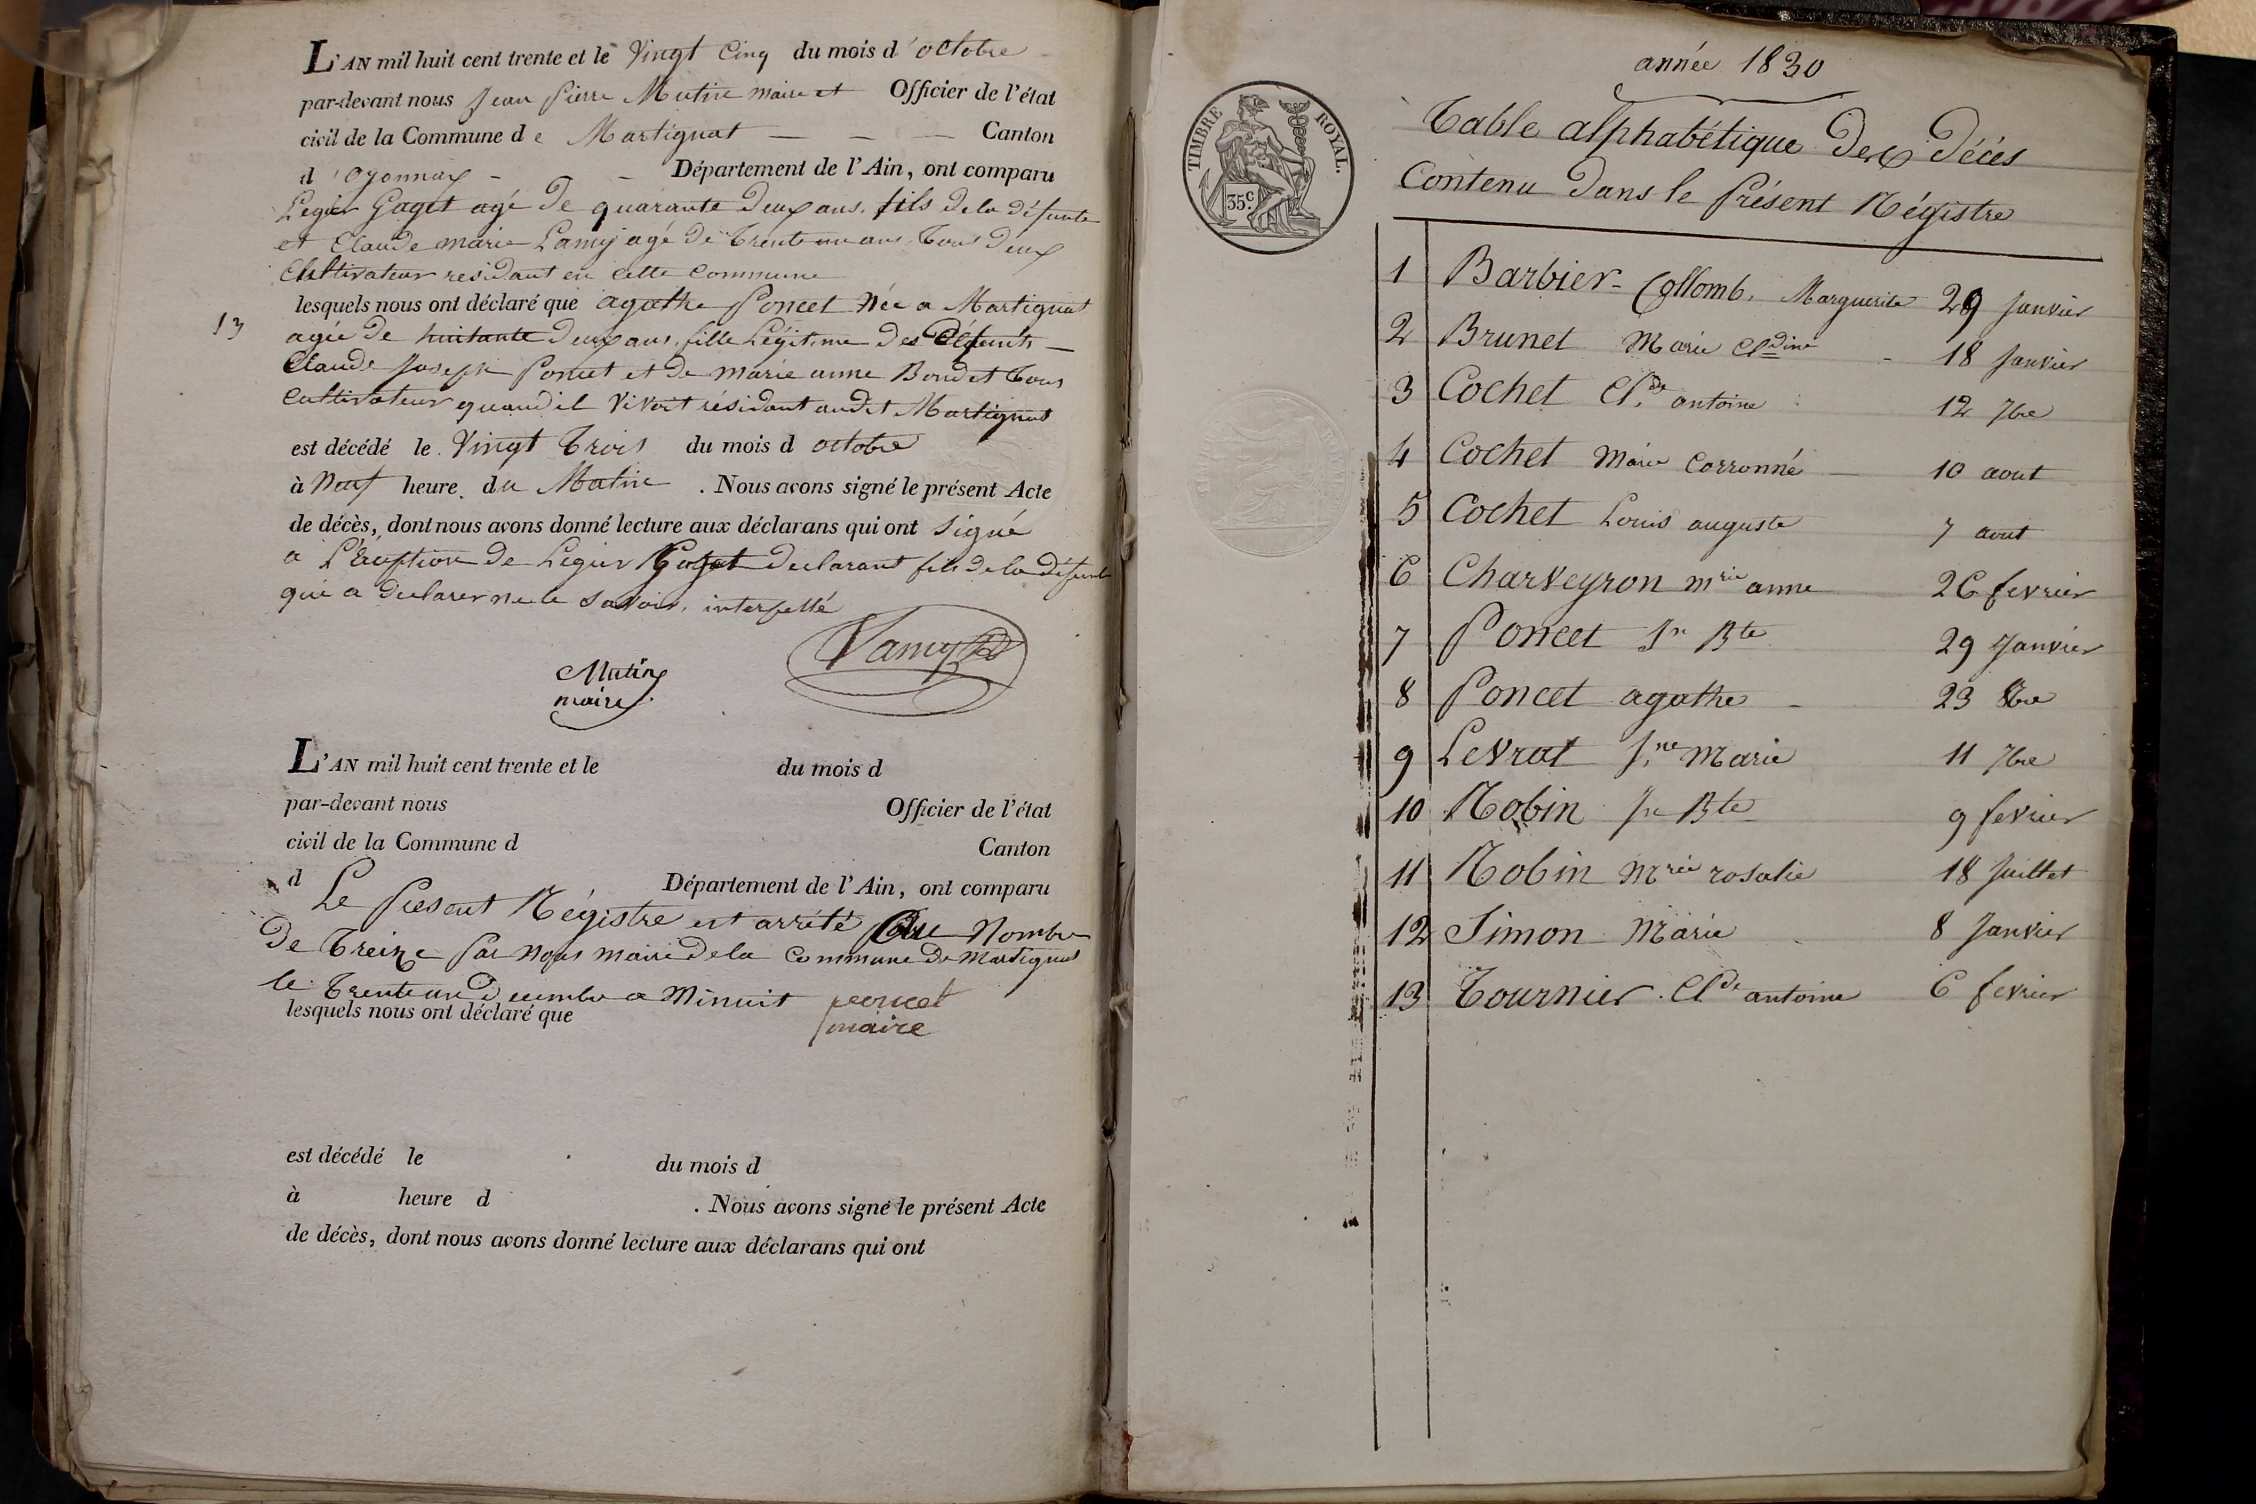 L'AN mil huit cent trente et le Vingt Cinq du mois d'octobre
par-devant nous Jean Pierre Mutin maire et Officier de l'état
civil de la Commune de Martignat Canton
d'Oyonnax Département de l'Ain, ont comparu
Legier Gaget agé de quarante deux ans, fils de la défunte
et Claude marie Lamy agé de Trente un ans Tous deux
Cultivateur residant en cette commune
13
lesquels nous ont déclaré que agathe Poncet Née a Martignat
agée de huitante deux ans, fille Légitime des Défunts
Claude Joseph Poncet et de marie anne Bondet Tous
Cultivateur quand il vivoit résidant audit Martignat
est décédé le Vingt Trois du mois d octobre
à Neuf heure du Matin . Nous avons signé le présent Acte
de décès, dont nous avons donné lecture aux déclarans qui ont signé
a L'éxeption de Legier Gaget declarant fils de la défunte
qui a declarer ne le savoir, interpellé
Lamy
Mutin
maire
L'AN mil huit cent trente et le du mois d
par-devant nous Officier de l'état
civil de la Commune d Canton
d Département de l'Ain, ont comparu
Le Présent Régistre est arrété au Nombre
de Treize Par Nous maire de la Commune de Martignat
le Trente un decembre a Minuit poncet
maire
lesquels nous ont déclaré que
est décédé le du mois d
à heure d . Nous avons signé le présent Acte
de décès, dont nous avons donné lecture aux déclarans qui ont
année 1830
TIMBRE ROYAL.
35 c.
Table alphabétique Des Décés
Contenu Dans le Présent Régistre
1 Barbier-Collomb. Marguerite 29 Janvier
2 Brunet Marie Cldine 18 Janvier
3 Cochet Clde antoine 12 7bre
4 Cochet Marie Corronné 10 aout
5 Cochet Louis auguste 7 aout
6 Charveyron mrie anne 26 fevrier
7 Poncet Jn Bte 29 Janvier
8 Poncet agathe 23 8bre
9 Levrat Jne Marie 11 7bre
10 Robin Jn Bte 9 fevrier
11 Robin Mrie rosalie 18 Juillet
12 Simon Marie 8 Janvier
13 Tournier Clde antoine 6 fevrier